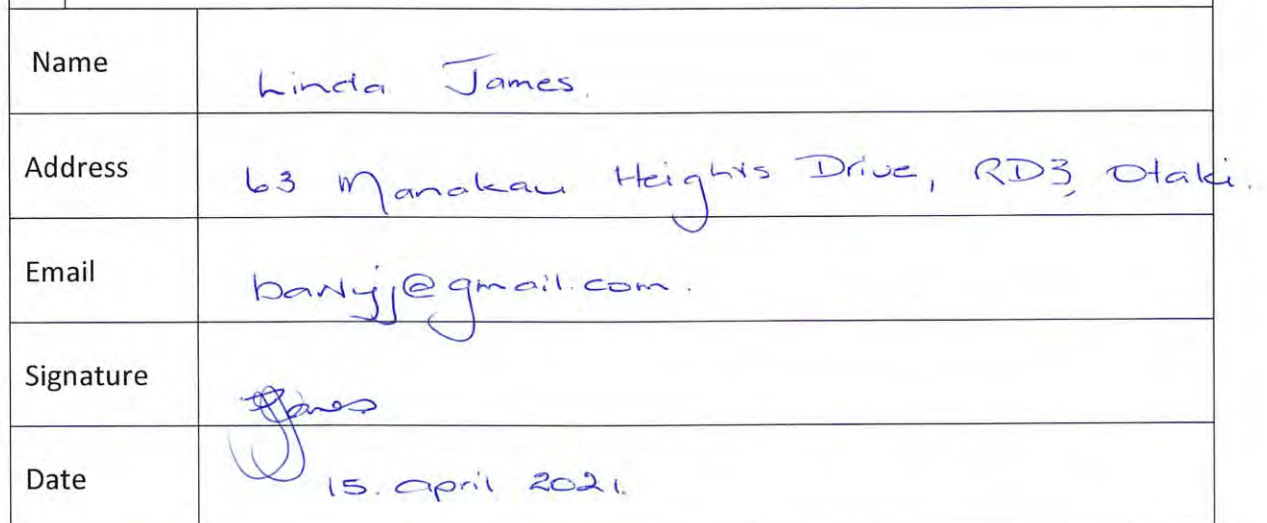 Name
Linda James.
Address
63 Manakau Heights Drive, RD3, Otaki.
Email
@gmail.com.
Signature
James
Date
15. april 2021.